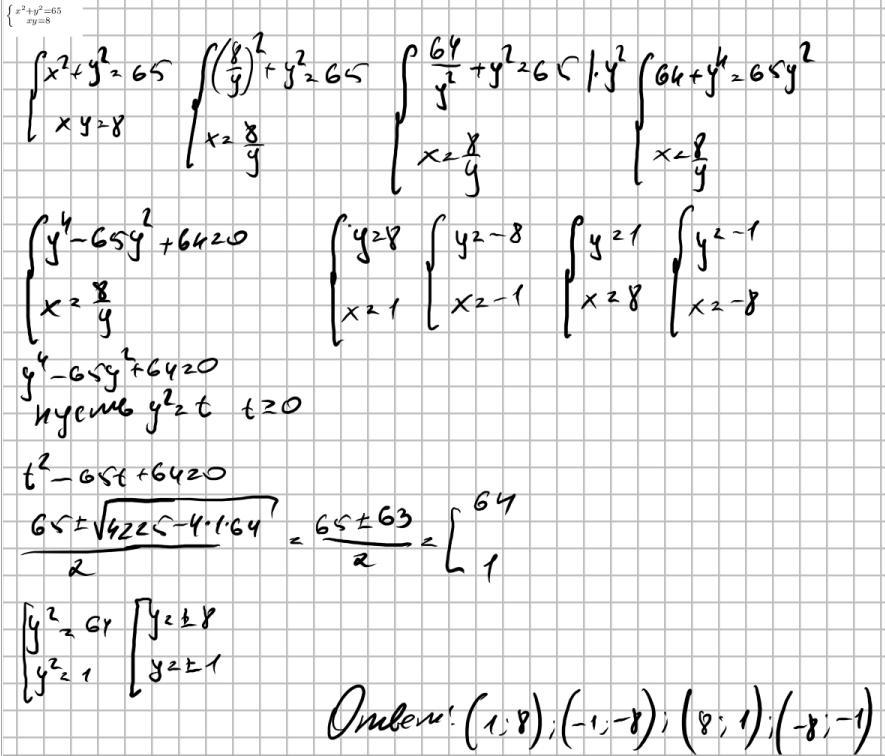 { x²+y²=65
xy=8
{ x²+y²=65
xy=8
{ (8/y)²+y²=65
x=8/y
{ 64/y²+y²=65 |·y²
x=8/y
{ 64+y⁴=65y²
x=8/y
{ y⁴-65y²+64=0
x=8/y
{ y=8
x=1
{ y=-8
x=-1
{ y=1
x=8
{ y=-1
x=-8
y⁴-65y²+64=0
пусть y²=t t≥0
t²-65t+64=0
(65±√(4225-4·1·64))/2 = (65±63)/2 = [ 64
1
[ y²=64
y²=1
[ y=±8
y=±1
Ответ: (1;8);(-1;-8);(8;1);(-8;-1)